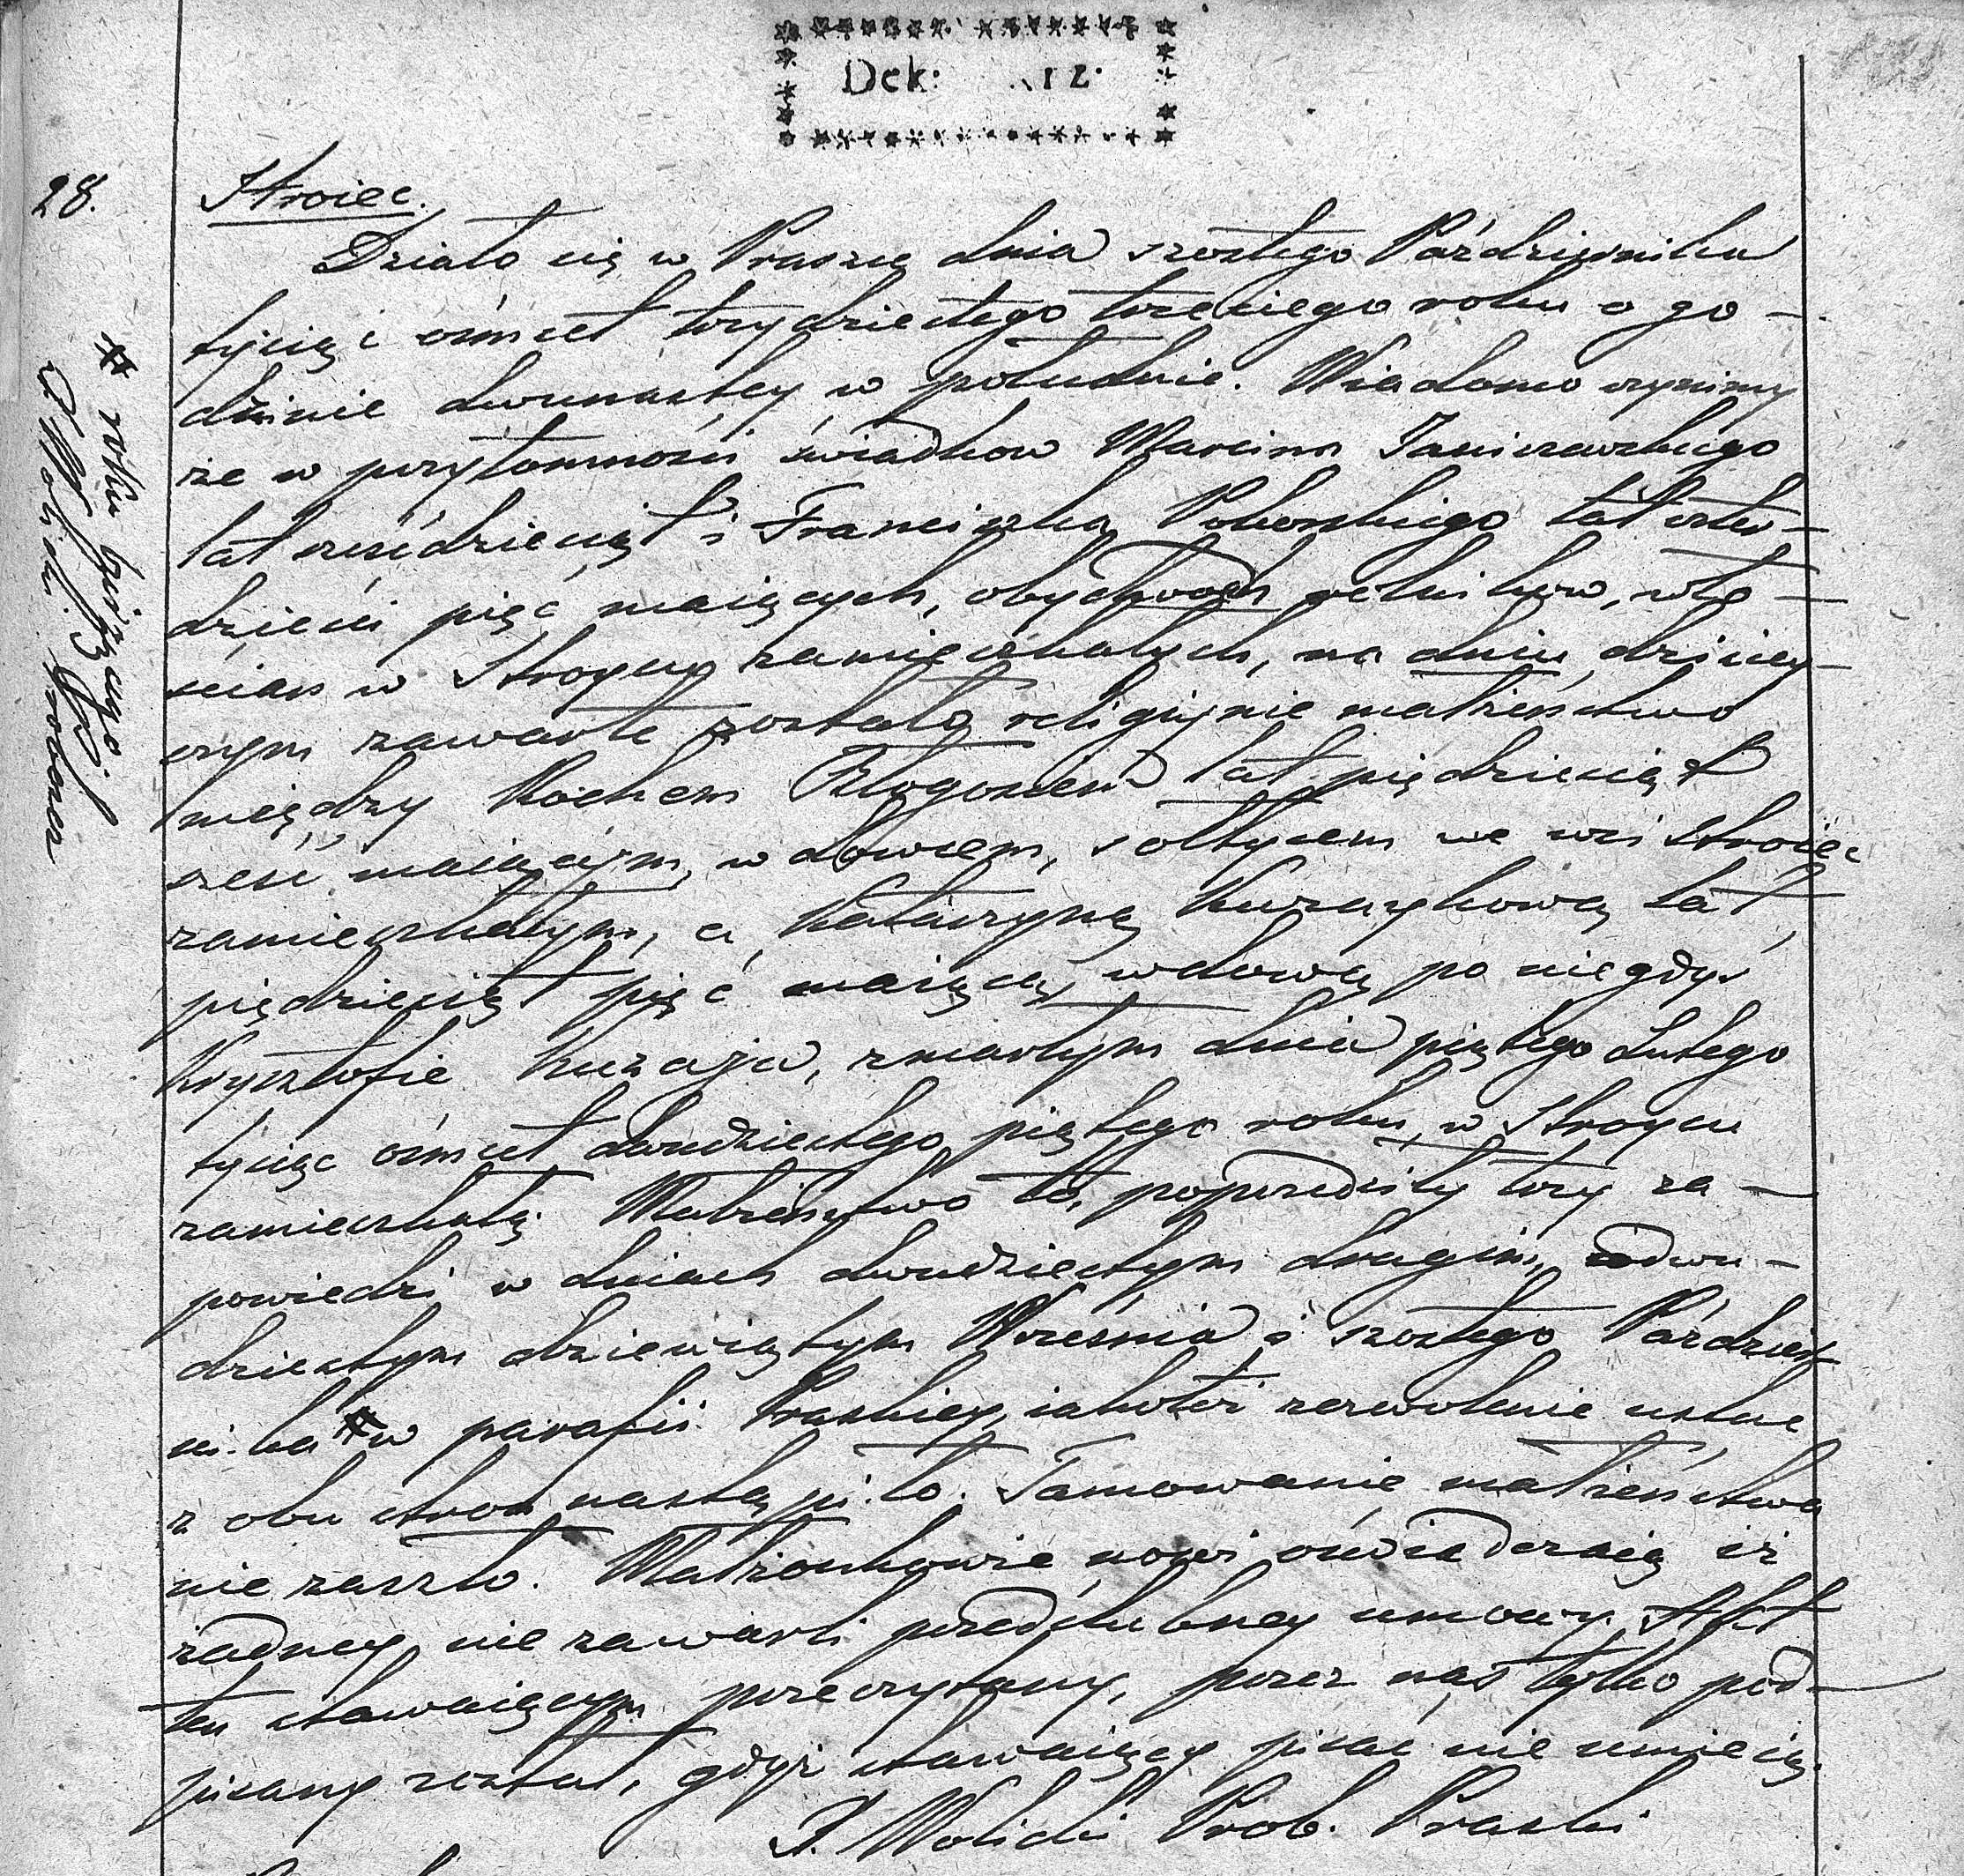 Dek: 12.
28.
Stroiec.
Działo się w Praszce dnia szostego Października
tysiąc ośmset trzydziestego trzeciego roku o go-
dzinie dwunastey w południe. Wiadomo czynimy
że w przytomności świadkow Marcina Janiszewskiego
lat sześdziesiąt i Franciszka Pokorskiego lat czter-
dzieści pięć maiących, obydwoch rolników, wło-
ścian w Stroycu zamieszkałych, na dniu dzisiey-
szym zawarte zostało religijnie małżeństwo
między Rochem lat piędziesiąt
sześć maiącym, wdowcem, sołtysem we wsi Stroiec
zamieszkałym, a Katarzyną Kuzaykową lat
piędziesiąt pięć maiącą, wdową po niegdyś
Krysztofie Kuzaju, zmarłym dnia piątego Lutego
tysiąc ośmset dwudziestego piątego roku, w Stroycu
zamieszkałą. Małżeństwo to, poprzedziły trzy za-
powiedzi w dniach dwudziestym drugim, dwu-
dziestym dziewiątym Września i szostego Paździer-
nika # w parafii Praskiey, iakoteż zezwolenie ustne
z obu stron nastąpiło. Tamowanie małżeństwa
nie zaszło. Małżonkowie nowi oświadczaią iż
żadney nie zawarli przedślubney umowy. Akt
ten stawaiącym przeczytany, przez nas tylko pod-
pisany został, gdyż stawaiący pisać nie umieią.
P. Wolicki Prob. Praszki
# roku bieżącego
P. Wolicki Proboszcz